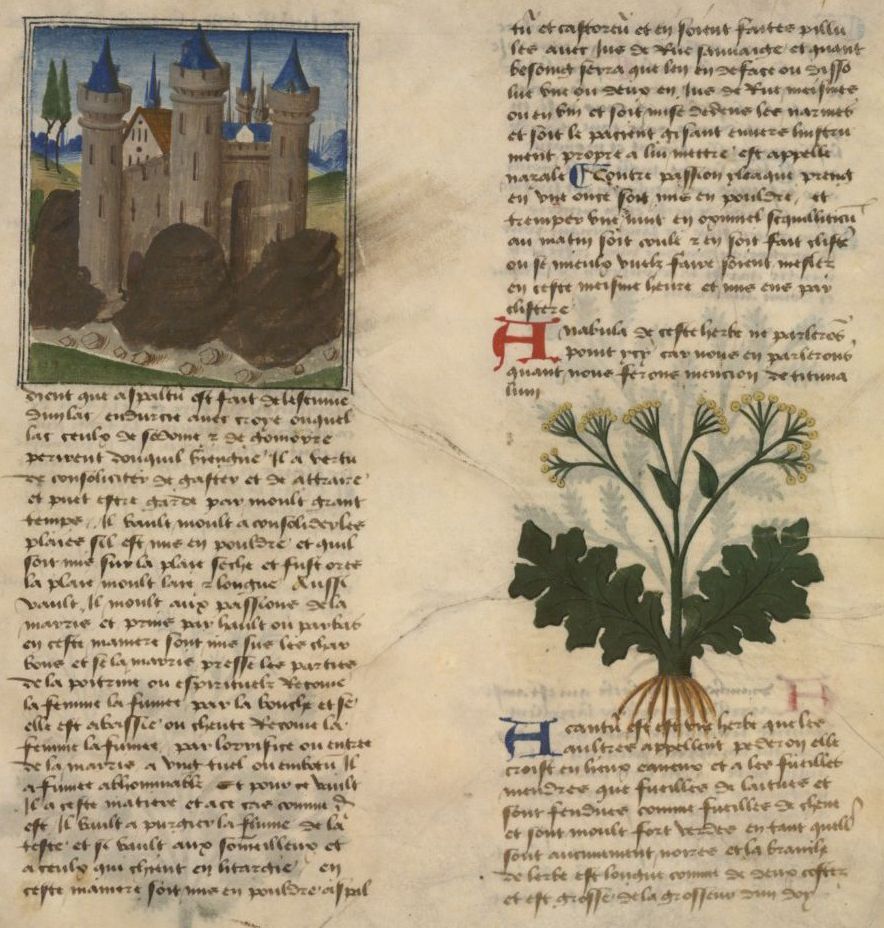 dient que aspaltu est fait de lescume
dun lac endurcie avec croye ouquel
lac ceulx de sedome z de gomorre
perirent douquil viengne Il a vertu
de consolider de gaster et de attraire
et puet estre garde par moult grant
temps. Il vault moult a consolider les
plaies sil est mis en pouldre et quil
soit mis sur la plaie seche et fust ores
la plaie moult lare z longue Aussi
vault Il moult aux passions de la
marris et prins par hault ou par bas
en ceste maniere sont mis sus les char
bons et se la marris presse les parties
de la poitrine ou espirituelz Recoive
la femme la fumee par la bouche et se
elle est abaissie ou cheute Recoive la
femme la fumee par lorrifice ou entree
de la marris a ung tuel ou embotu Il
a fumee abhominable Et pour ce vault
Il a ceste matiere et a ce cas comme dt
est Il vault a purgier la flume de la
teste et si vault aux someilleux et
a ceulx qui chieent en litargie en
ceste maniere soit mis en pouldre aspal
tu et castoreu et en soient faites pillu
les avec Jus de Rue sauvaige et quant
besoing serra que len en deface ou disso
lue une ou deux en Jus de Rue meismes
ou en vin et soit mise dedens les narines
et soit le pacient gisant envers linstru
ment propre a lui mettre est appelle
nazale Contre passion yleaque preng
en une once soit mis en pouldre, et
tremper une nuit en oximel squalliticu
au matin soit coule z en soit fait clistre
ou se mieulx vuelz faire soient mesler
en ceste meisme heure et mis ens par
clistere
Anabula de ceste herbe ne parlerons
point ycy car nous en parlerons
quant nous ferons mencion de titima
lum
Acantu est est une herbe que les
aultres appellent pederon elle
croist en lieux eaueux et a les fueilles
mendres que fueilles de laitues et
sont fendues comme fueilles de chene
et sont moult fort verdes en tant quell
sont aucunement noires et la branche
de lerbe est longue comme de deux costes
et est grosse de la grosseur dun doy